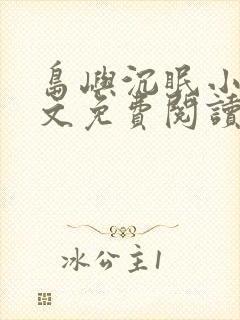 島嶼沉眠小
文免費閱讀
冰公主1